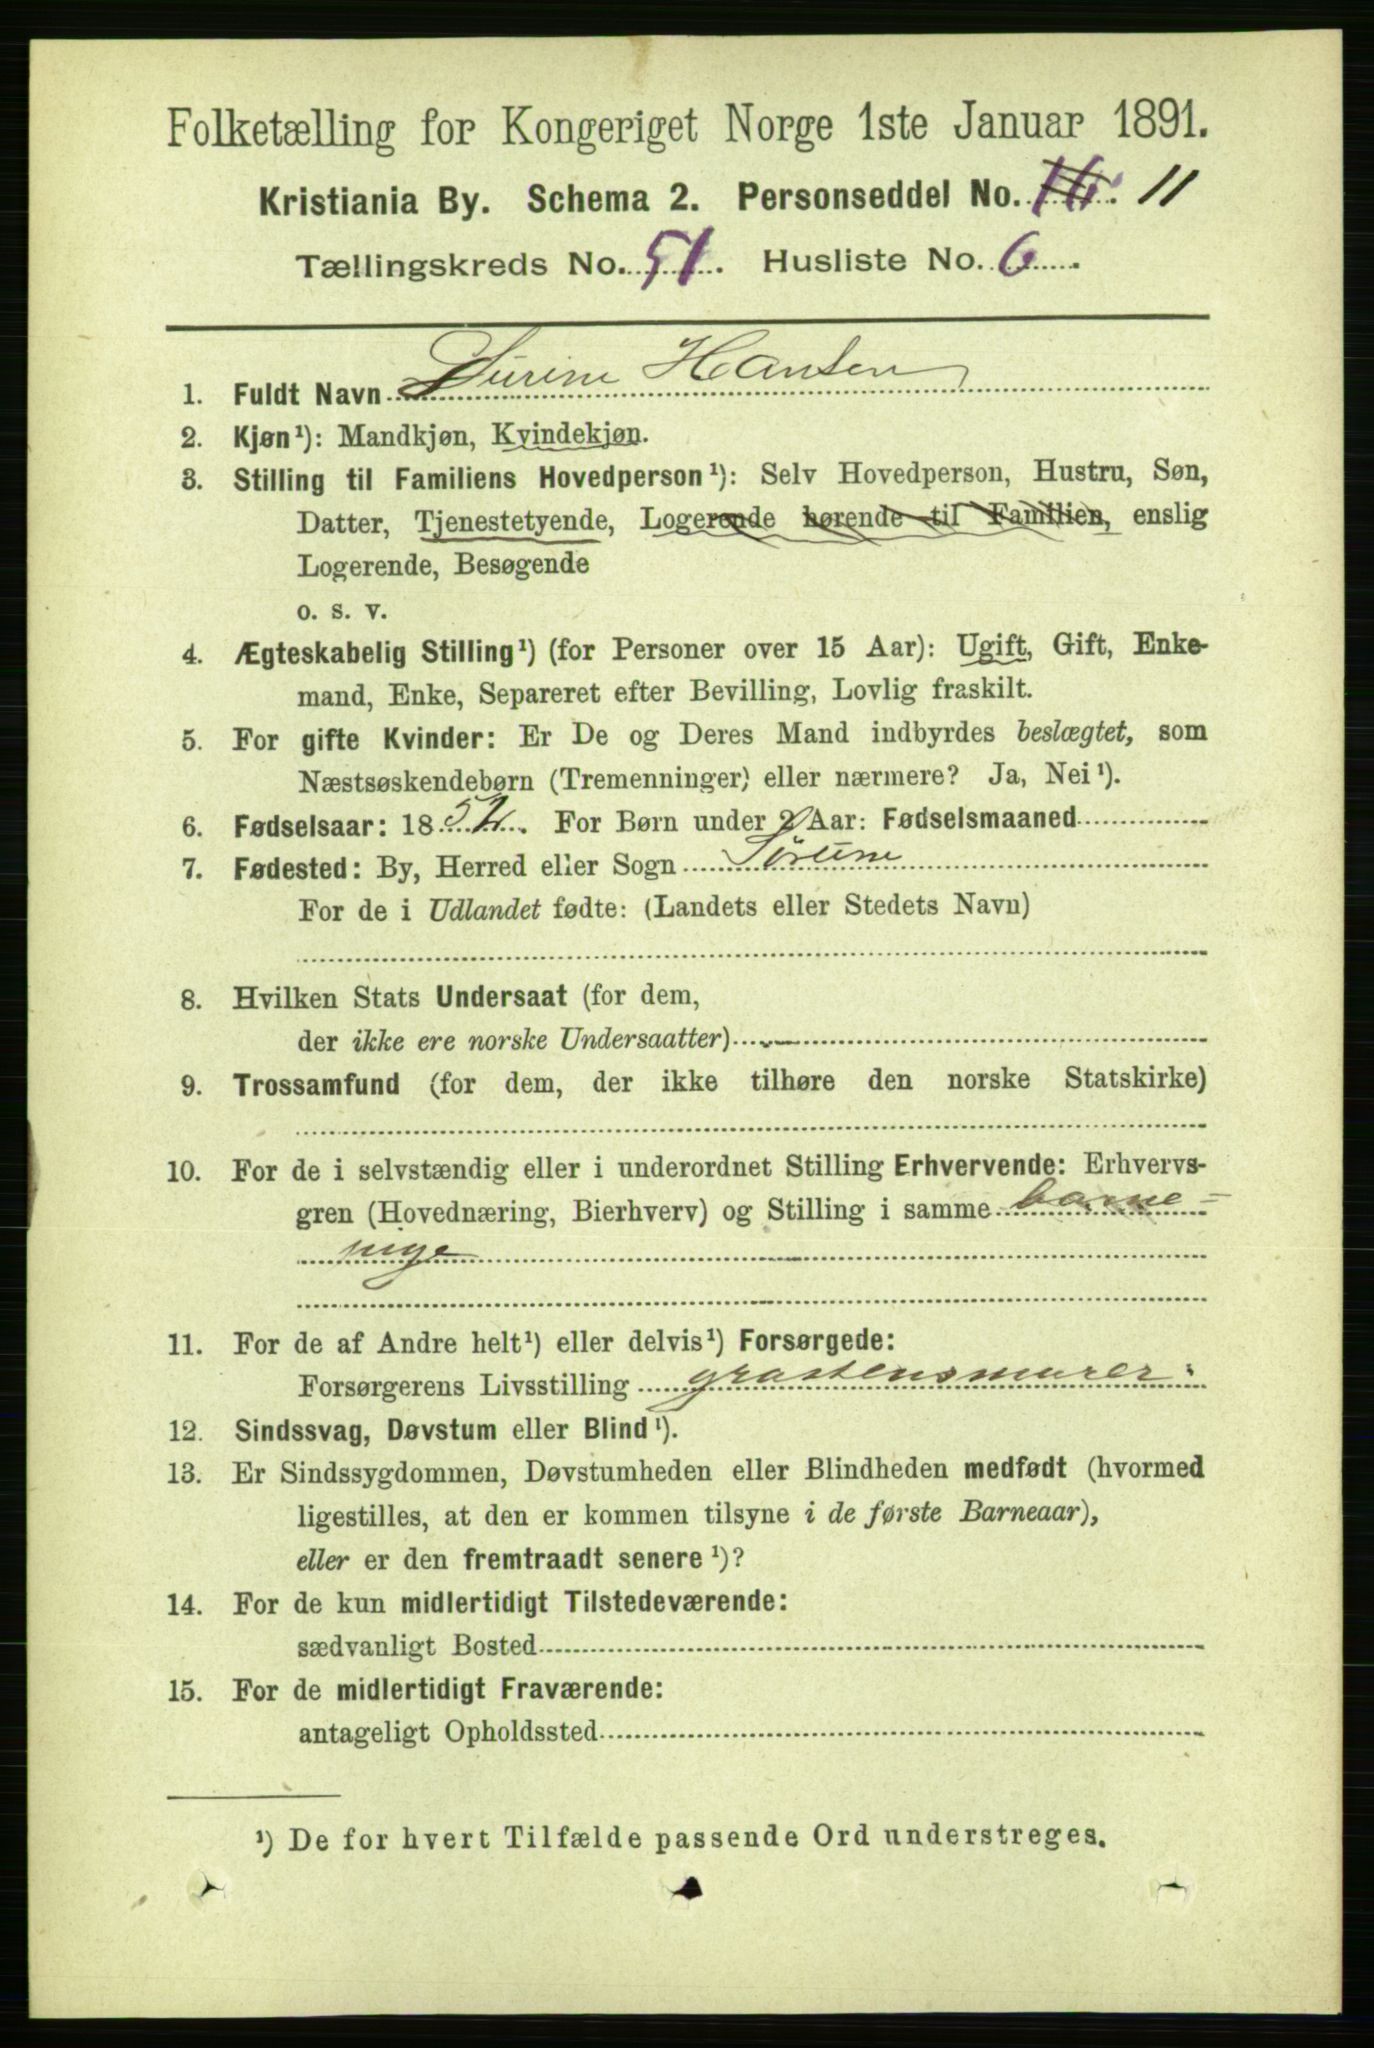 Folketælling for Kongeriget Norge 1ste Januar 1891.
Kristiania By. Schema 2. Personseddel No. 16. 11
Tællingskreds No. 51. Husliste No. 6.
1. Fuldt Navn Hansen
2. Kjøn¹): Mandkjøn, Kvindekjøn.
3. Stilling til Familiens Hovedperson¹): Selv Hovedperson, Hustru, Søn,
Datter, Tjenestetyende, Logerende hørende til Familien, enslig
Logerende, Besøgende
o. s. v.
4. Ægteskabelig Stilling¹) (for Personer over 15 Aar): Ugift, Gift, Enke-
mand, Enke, Separeret efter Bevilling, Lovlig fraskilt.
5. For gifte Kvinder: Er De og Deres Mand indbyrdes beslægtet, som
Næstsøskendebørn (Tremenninger) eller nærmere? Ja, Nei¹).
6. Fødselsaar: 1852. For Børn under 2 Aar: Fødselsmaaned
7. Fødested: By, Herred eller Sogn
For de i Udlandet fødte: (Landets eller Stedets Navn)
8. Hvilken Stats Undersaat (for dem,
der ikke ere norske Undersaatter)
9. Trossamfund (for dem, der ikke tilhøre den norske Statskirke)
10. For de i selvstændig eller i underordnet Stilling Erhvervende: Erhvervs-
gren (Hovednæring, Bierhverv) og Stilling i samme barne-
pige
11. For de af Andre helt¹) eller delvis¹) Forsørgede:
Forsørgerens Livsstilling grastensmurer.
12. Sindssvag, Døvstum eller Blind¹).
13. Er Sindssygdommen, Døvstumheden eller Blindheden medfødt (hvormed
ligestilles, at den er kommen tilsyne i de første Barneaar),
eller er den fremtraadt senere¹)?
14. For de kun midlertidigt Tilstedeværende:
sædvanligt Bosted
15. For de midlertidigt Fraværende:
antageligt Opholdssted
¹) De for hvert Tilfælde passende Ord understreges.